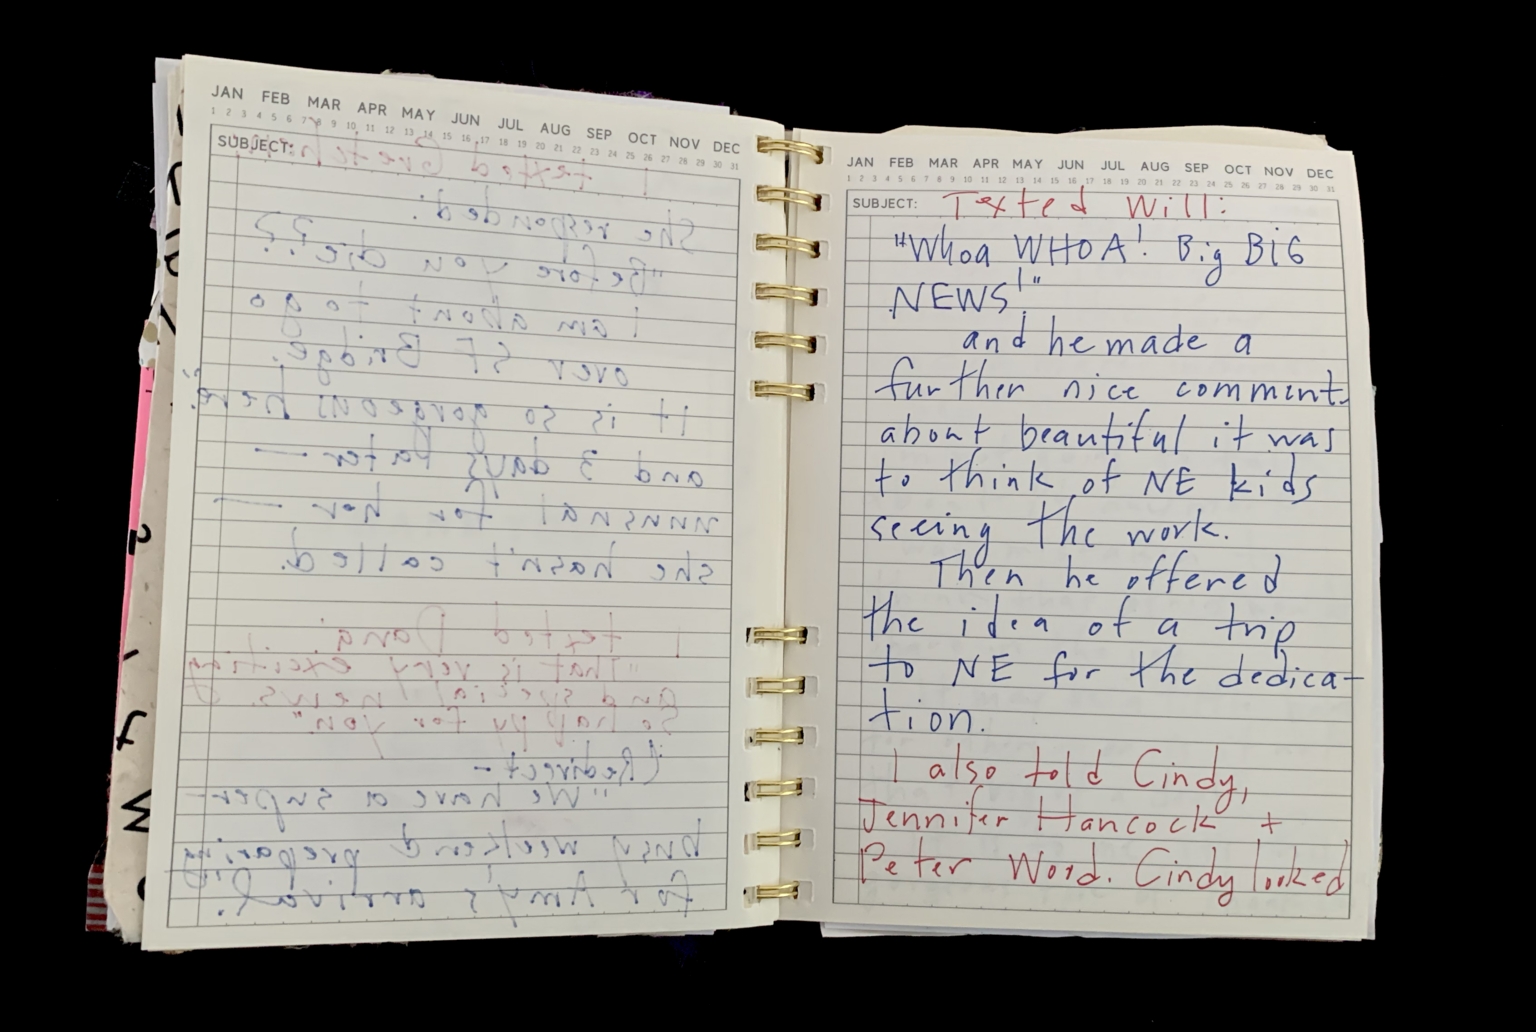 JAN FEB MAR APR MAY JUN JUL AUG SEP OCT NOV DEC
1 2 3 4 5 6 7 8 9 10 11 12 13 14 15 16 17 18 19 20 21 22 23 24 25 26 27 28 29 30 31
SUBJECT:
I texted
She responded:
"Before you die??
I am about to go
over SF Bridge.
It is so gorgeous here.
and 3 days later —
unusual for her —
she hasn't called.
I texted Dana:
"That is very exciting
and special news.
So happy for you."
(Redirect –
"We have a super-
busy weekend preparing
for Amy's arrival.
JAN FEB MAR APR MAY JUN JUL AUG SEP OCT NOV DEC
1 2 3 4 5 6 7 8 9 10 11 12 13 14 15 16 17 18 19 20 21 22 23 24 25 26 27 28 29 30 31
SUBJECT: Texted Will:
"Whoa WHOA! Big BIG
NEWS!"
and he made a
further nice comment
about beautiful it was
to think of NE kids
seeing the work.
Then he offered
the idea of a trip
to NE for the dedica-
tion.
I also told Cindy,
Jennifer Hancock +
Peter Word. Cindy looked